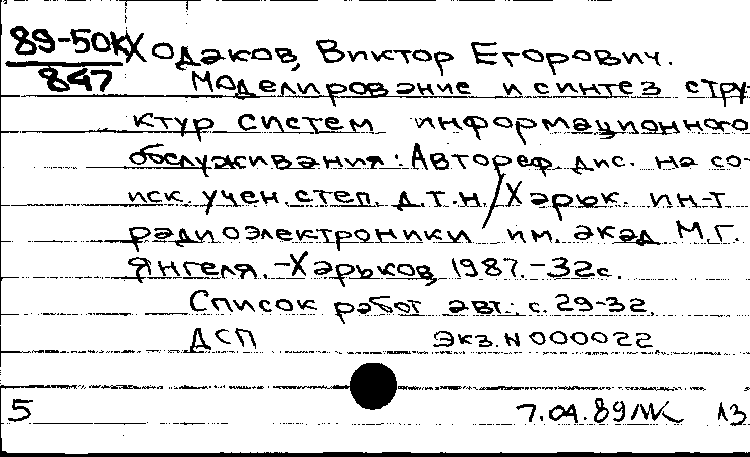 89-50К
847
Ходаков, Виктор Егорович.
Моделирование и синтез стру-
ктур систем информационного
обслуживания: Автореф. дис. на со-
иск. учен. степ. д.т.н. / Харьк. ин-т
радиоэлектроники им. акад. М.Г.
Янгеля. - Харьков, 1987. - 32с.
Список работ авт.: с. 29-32.
ДСП Экз. N 000022
5 7.04.89 ЛЗ